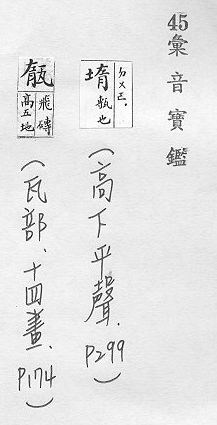 45彙音寶鑑
堶
也
(高下平聲、P299)
飛磚
高五地
(瓦部、十四畫、P174)